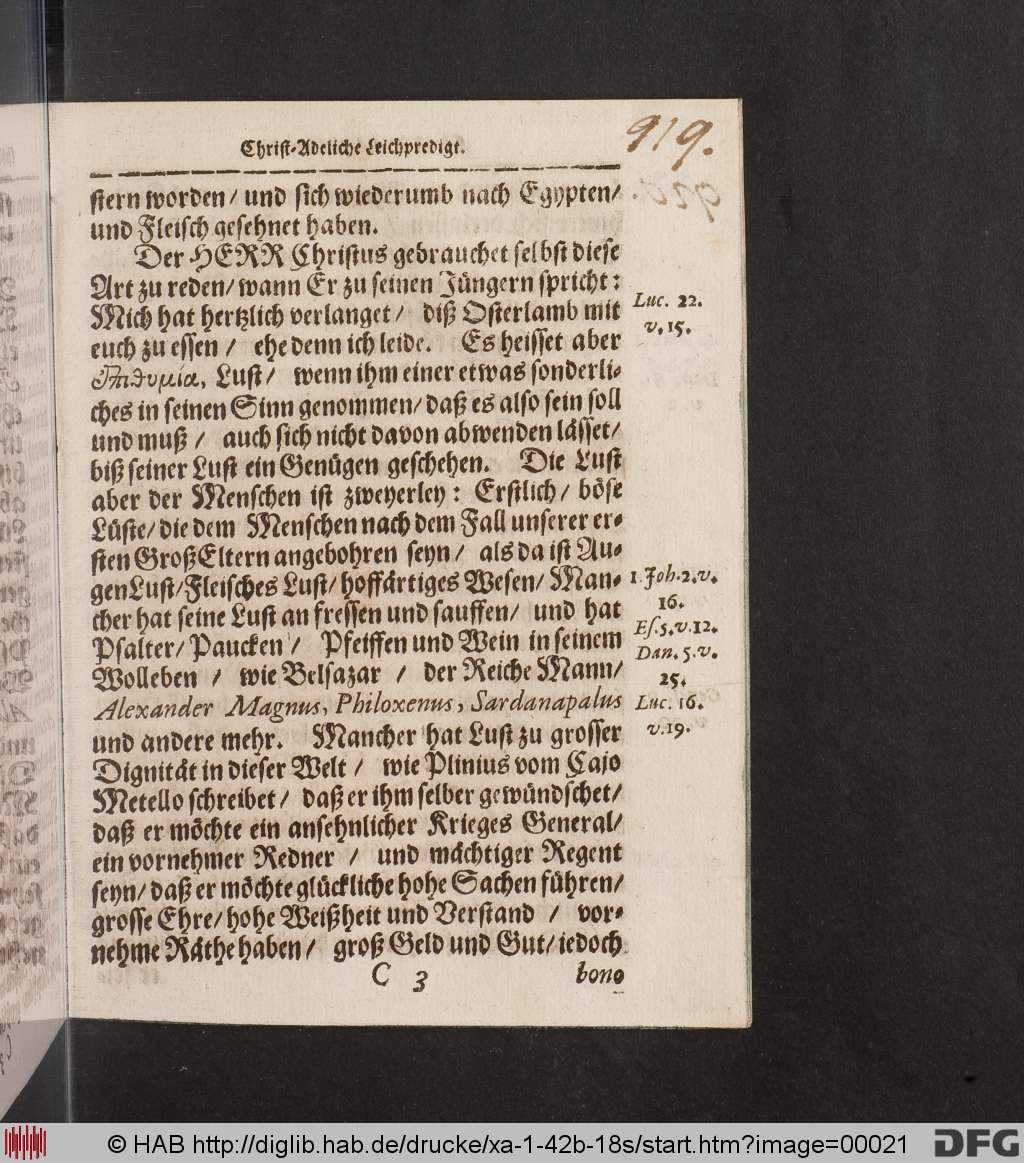 919.
Christ-Adeliche Leichpredigt.
stern worden/ und sich wiederumb nach Egypten/
und Fleisch gesehnet haben.
Der HERR Christus gebrauchet selbst diese
Art zu reden/ wann Er zu seinen Jüngern spricht:
Mich hat hertzlich verlanget/ diß Osterlamb mit
euch zu essen/ ehe denn ich leide. Es heisset aber
ἐπιθυμία, Lust/ wenn ihm einer etwas sonderli-
ches in seinen Sinn genommen/ daß es also sein soll
und muß/ auch sich nicht davon abwenden lässet/
biß seiner Lust ein Genügen geschehen. Die Lust
aber der Menschen ist zweyerley: Erstlich/ böse
Lüste/ die dem Menschen nach dem Fall unserer er-
sten GroßEltern angebohren seyn/ als da ist Au-
genLust/ Fleisches Lust/ hoffärtiges Wesen/ Man-
cher hat seine Lust an fressen und sauffen/ und hat
Psalter/ Paucken/ Pfeiffen und Wein in seinem
Wolleben/ wie Belsazar/ der Reiche Mann/
Alexander Magnus, Philoxenus, Sardanapalus
und andere mehr. Mancher hat Lust zu grosser
Dignität in dieser Welt/ wie Plinius vom Cajo
Metello schreibet/ daß er ihm selber gewündschet/
daß er möchte ein ansehnlicher Krieges General/
ein vornehmer Redner/ und mächtiger Regent
seyn/ daß er möchte glückliche hohe Sachen führen/
grosse Ehre/ hohe Weißheit und Verstand/ vor-
nehme Räthe haben/ groß Geld und Gut/ iedoch
C 3 bono
Luc. 22.
v, 15.
1. Joh. 2. v.
16.
Es. 5. v. 12.
Dan. 5. v.
25.
Luc. 16.
v. 19.
© HAB http://diglib.hab.de/drucke/xa-1-42b-18s/start.htm?image=00021
DFG